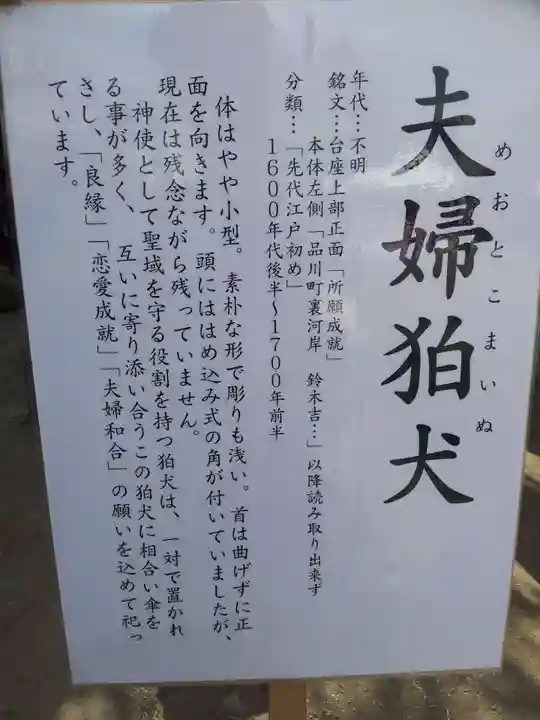 夫婦狛犬
めおとこまいぬ
年代…不明
銘文…台座上部正面「所願成就」
本体左側「品川町裏河岸 鈴木吉…」以降読み取り出来ず
分類…「先代江戸初め」
１６００年代後半～１７００年前半
体はやや小型。素朴な形で彫りも浅い。首は曲げずに正
面を向きます。頭にははめ込み式の角が付いていましたが、
現在は残念ながら残っていません。
神使として聖域を守る役割を持つ狛犬は、一対で置かれ
る事が多く、互いに寄り添い合うこの狛犬に相合い傘を
さし、「良縁」「恋愛成就」「夫婦和合」の願いを込めて祀っ
ています。